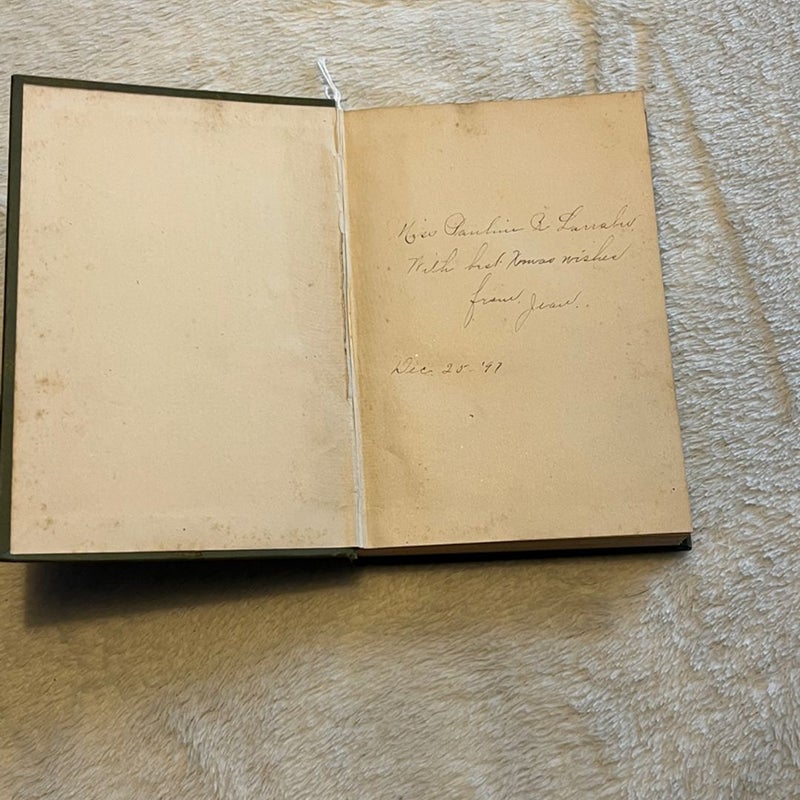 Miss Pauline R Larrabee
With best Xmas wishes
from Jean.
Dec. 25- '97